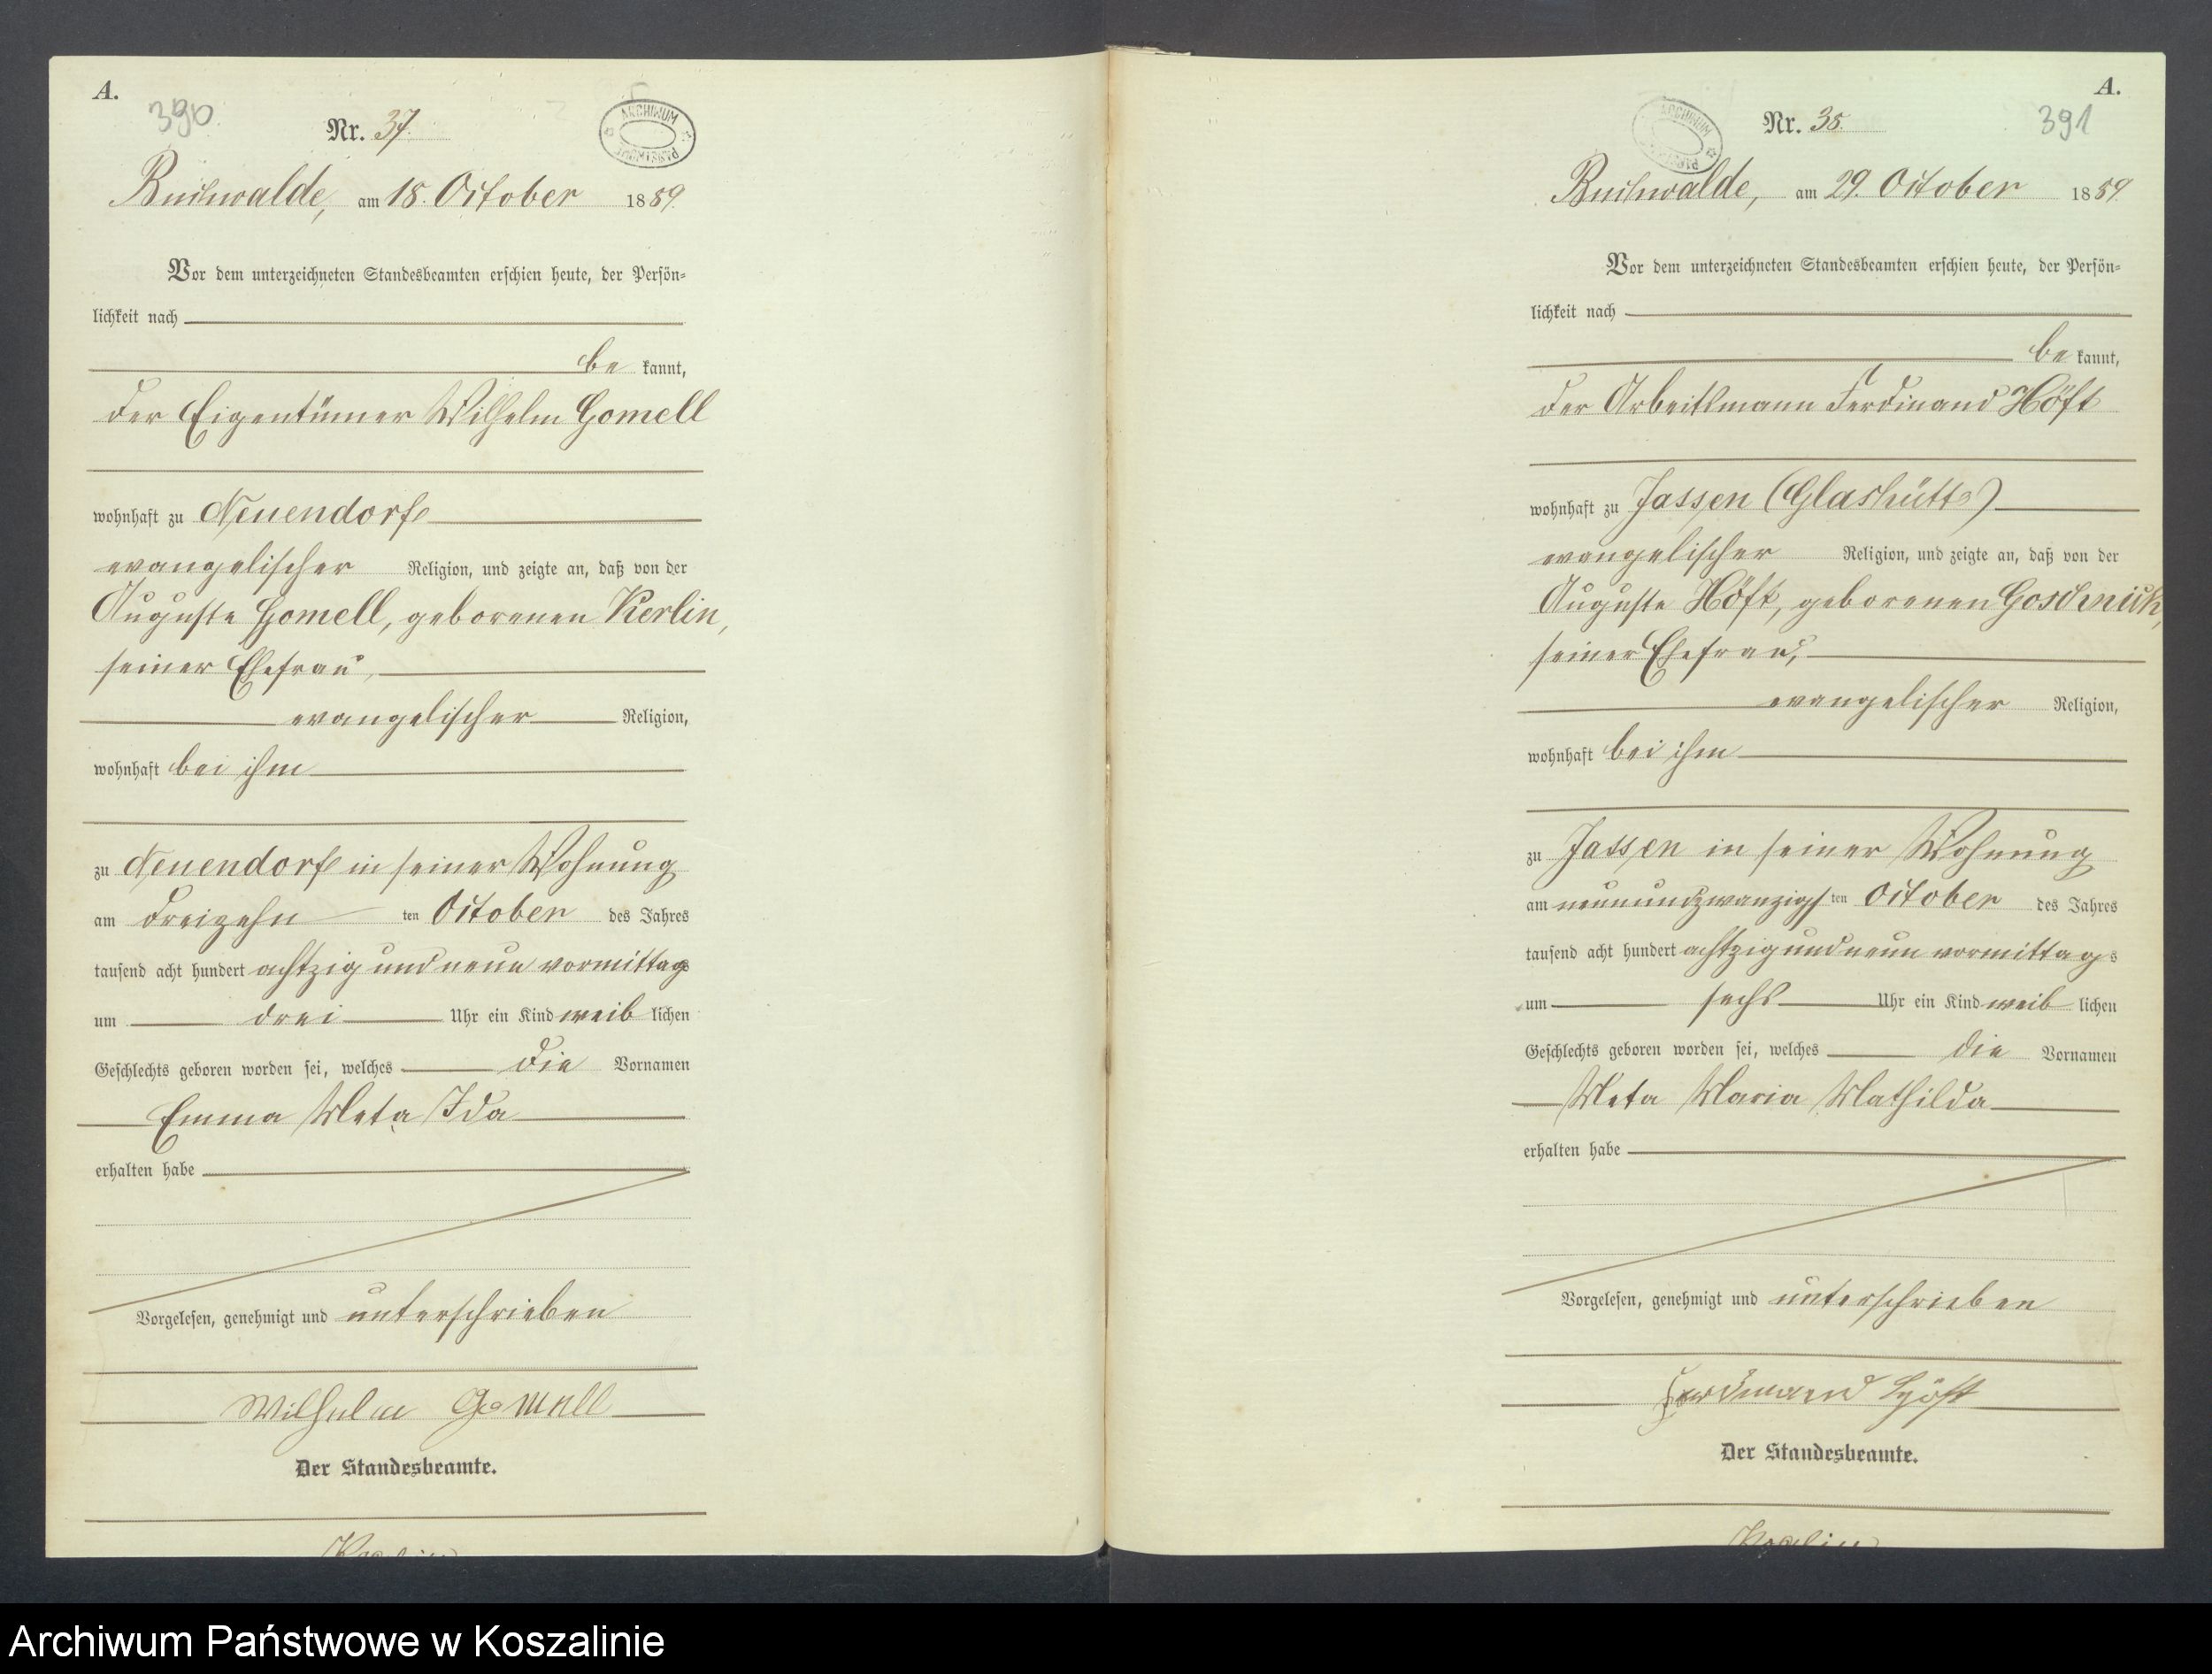 A.
390
Nr. 37.
ARCHIWUM PAŃSTWOWE
Buchwalde, am 18. October 1889.
Vor dem unterzeichneten Standesbeamten erschien heute, der Persön-
lichkeit nach
be kannt,
der Eigentümer Wilhelm Gomell
wohnhaft zu Neuendorf
evangelischer Religion, und zeigte an, daß von der
Auguste Gomell, geborenen Kerlin,
seiner Ehefrau,
evangelischer Religion,
wohnhaft bei ihm
zu Neuendorf in seiner Wohnung
am dreizehn ten October des Jahres
tausend acht hundert achtzig und neun vormittags
um drei Uhr ein Kind weib lichen
Geschlechts geboren worden sei, welches die Vornamen
Emma Meta Ida
erhalten habe
Vorgelesen, genehmigt und unterschrieben
Wilhelm Gomell
Der Standesbeamte.
A.
391
Nr. 38.
ARCHIWUM
Buchwalde, am 29. October 1889.
Vor dem unterzeichneten Standesbeamten erschien heute, der Persön-
lichkeit nach
be kannt,
der Arbeitsmann Ferdinand Höft
wohnhaft zu Jassen (Glashütte)
evangelischer Religion, und zeigte an, daß von der
Auguste Höft, geborenen Goschnick,
seiner Ehefrau,
evangelischer Religion,
wohnhaft bei ihm
zu Jassen in seiner Wohnung
am neunundzwanzigs ten October des Jahres
tausend acht hundert achtzig und neun vormittags
um sechs Uhr ein Kind weib lichen
Geschlechts geboren worden sei, welches die Vornamen
Meta Maria Mathilda
erhalten habe
Vorgelesen, genehmigt und unterschrieben
Ferdinand Höft
Der Standesbeamte.
Archiwum Państwowe w Koszalinie